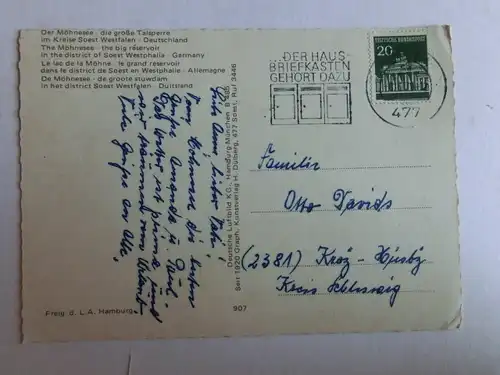 Der Möhnesee - die große Talsperre
im Kreise Soest Westfalen - Deutschland
The Möhnesee - the big reservoir
in the district of Soest Westphalia - Germany
Le lac de la Möhne - le grand reservoir
dans le district de Soest en Westphalie - Allemagne
De Möhnesee - de groote stuwdam
in het district Soest Westfalen - Duitsland
Liebe Anni, lieber
vom Möhnesee die besten
Grüße
Das Wetter ist prima und
wir
Viele Grüße an alle.
Freig. d. L.A. Hamburg
907
Deutsche Luftbild K.G., Hamburg-München B 485
Seit 1920 Graph. Kunstverlag H. Dülberg, 477 Soest, Ruf 3446
DER HAUS-
BRIEFKASTEN
GEHÖRT DAZU
DEUTSCHE BUNDESPOST
20
477
Familie
Otto Davids
(2381)
Kreis Schleswig